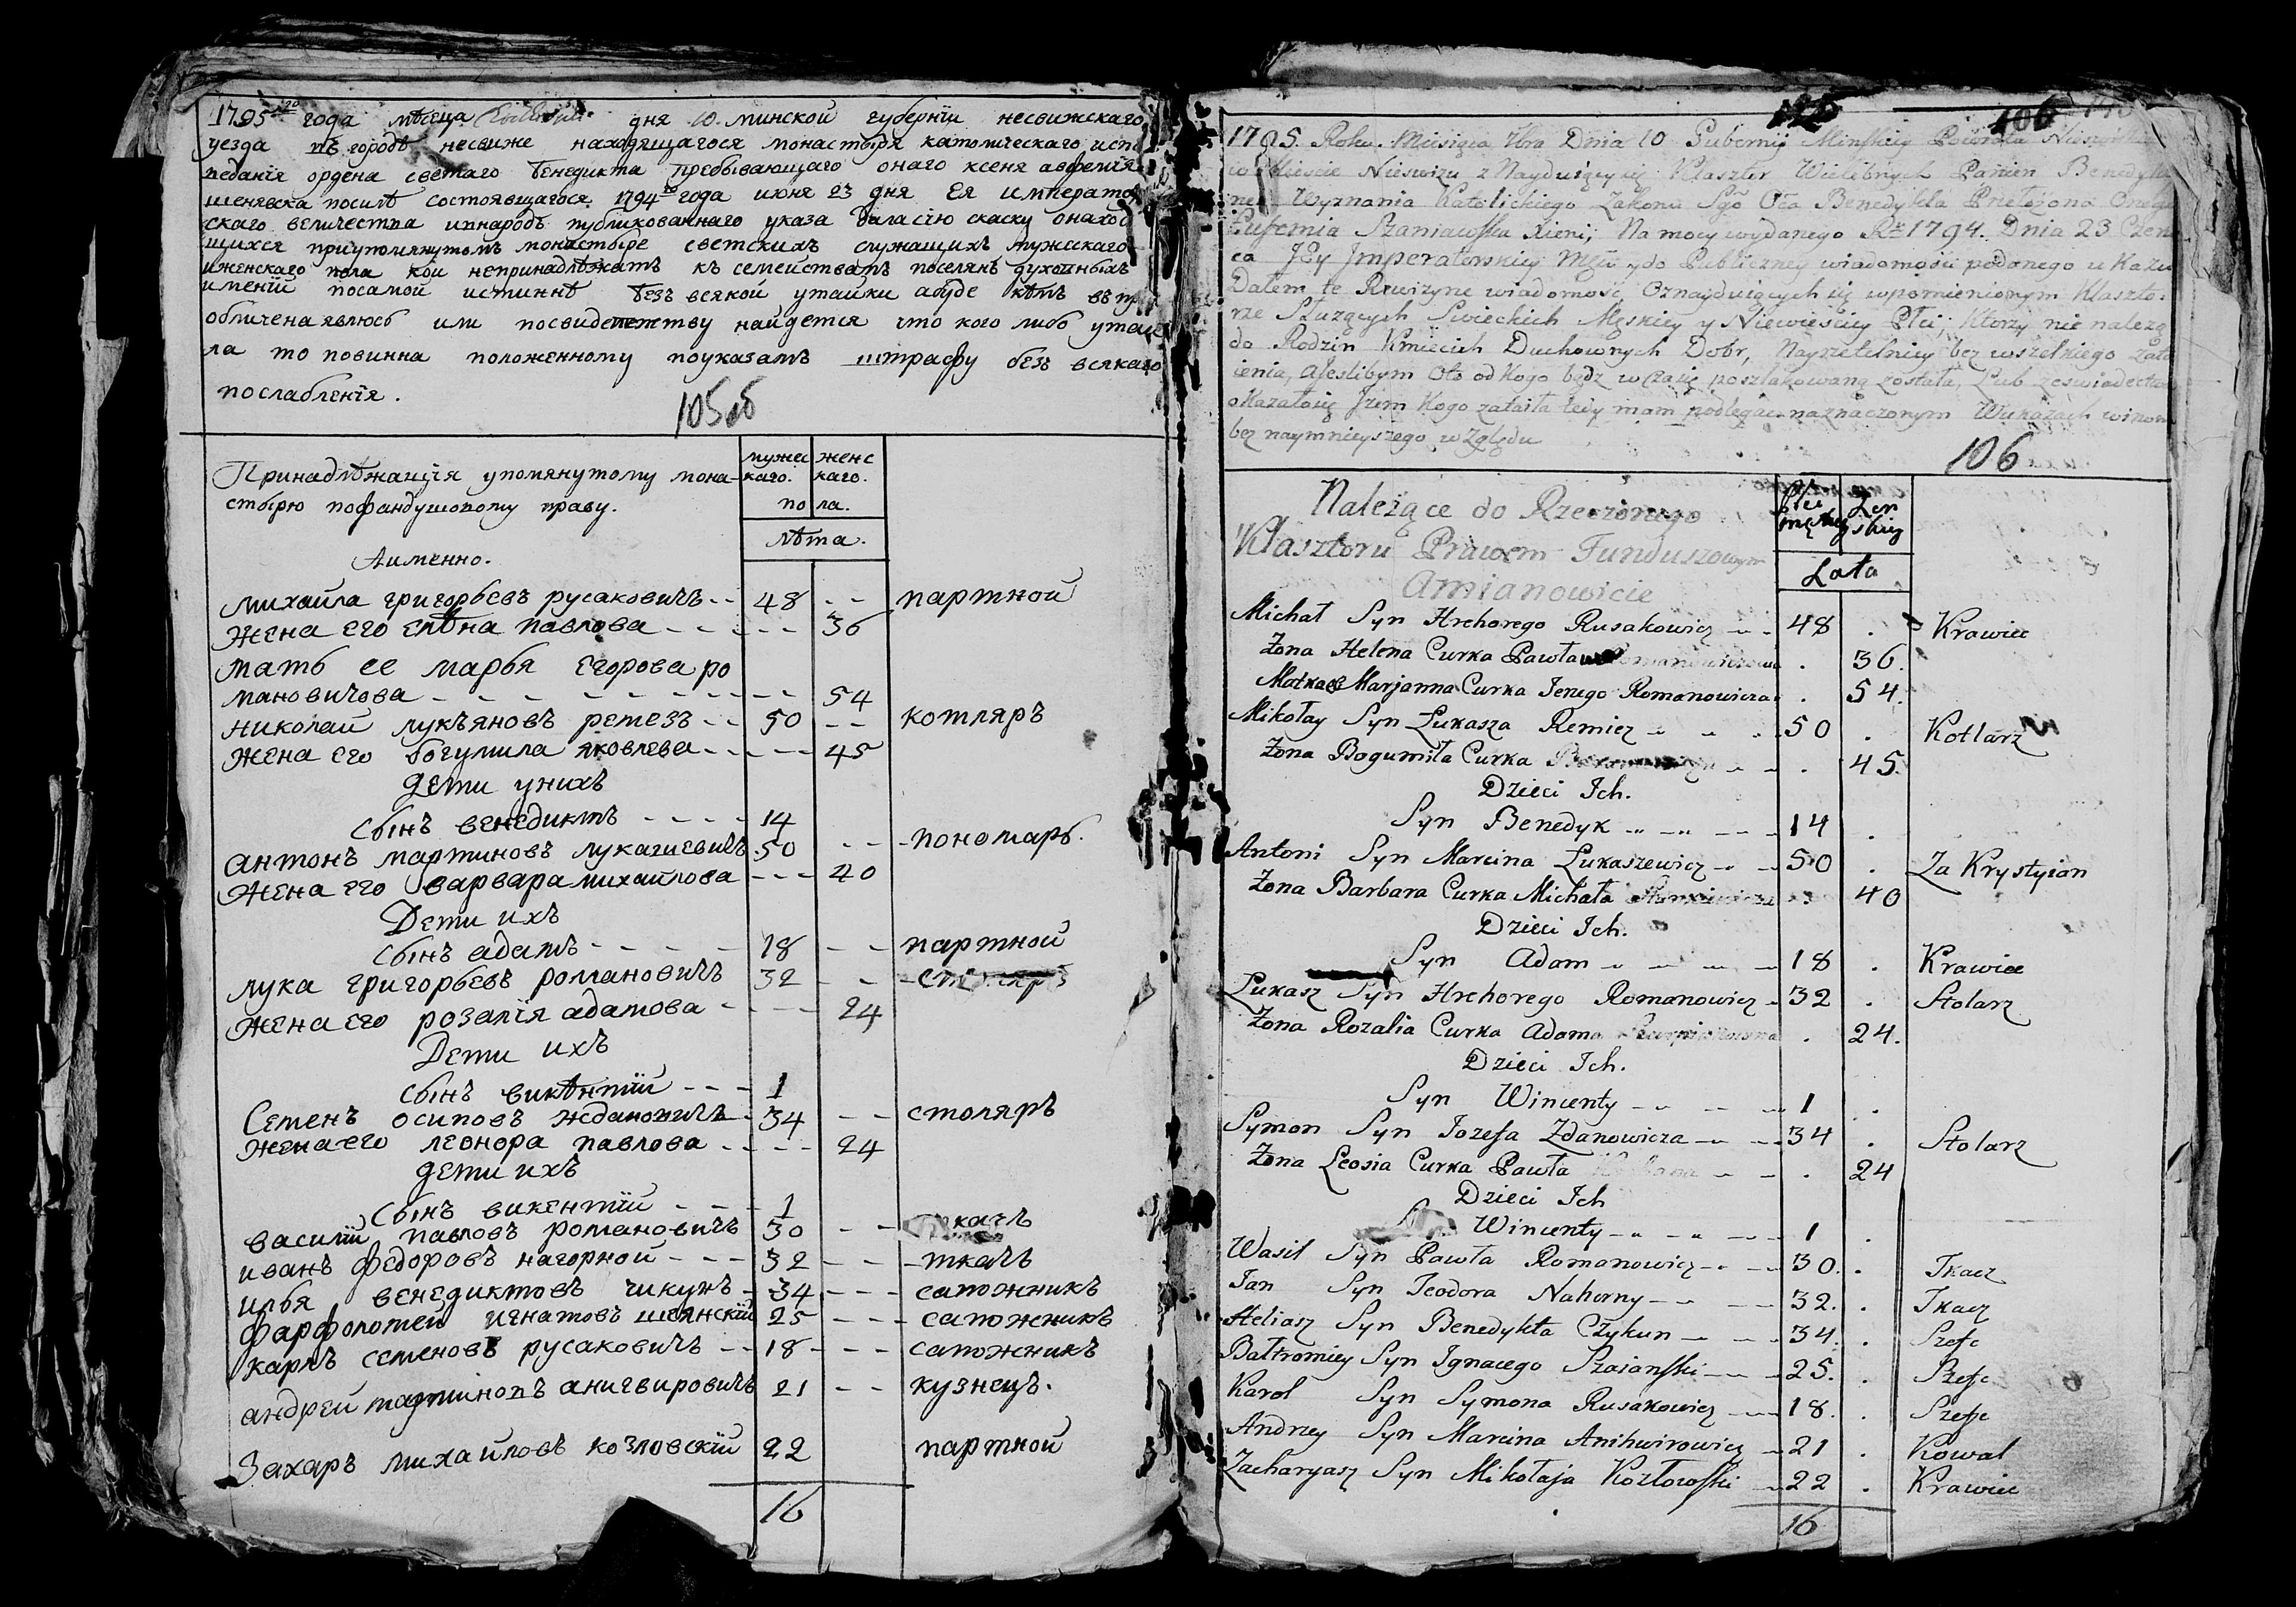 1795го года мѣсеца дня 10. минской губернїи несвижскаго
уезда въ городѣ несвиже находящагося монастыря католическаго испо
веданїя ордена светаго бенедикта пребывающаго онаго ксеня авфемїя
шенявска посилѣ состоявщагося 1794го года июня 23 дня Ея император
скаго величества ивнародъ публикованнаго указа дала сїю скаску онаход
щихся приупомянутомъ монастыре светскихъ служащихъ мужескаго
иженскаго пола кои непринадлѣжатъ къ семействамъ поселянъ духовныхъ
именїй посамой истиннѣ безъ всякой утайки абуде кѣмъ въ
обличена явлюсь или посвидетелству найдется что кого либо утаи
ла то повинна положенному поуказамъ штрафу безъ всякаго
послабленїя.
105об
Принадлѣжащїя упомянутому мона-
стырю пофандушовому праву.
Аименно.
мужес каго. женс каго.
по ла.
лѣта.
михайла григорьевъ русаковичъ -- 48 -- партной
жена его елѣна павлова ----- 36
мать ее марья Егорова ро
мановичова -------- 54
николай лукъяновъ ремезъ -- 50 -- котляръ
жена его богумила яковлева ---- 45
дети унихъ
сынъ венедиктъ ---- 14
антонъ мартиновъ лукашевичъ 50 -- пономарь.
жена его варвара михайлова --- 40
Дети ихъ
сынъ адамъ ---- 18 -- партной
лука григорьевъ романовичъ 32 -- столяръ
жена его розалїя адамова ---- 24
Дети ихъ
сынъ викѣнтїй --- 1
Семенъ осиповъ ждановичъ - 34 -- столяръ
жена его леонора павлова ---- 24
дети ихъ
сынъ викентїй --- 1
василїй павловъ романовичъ 30 -- ткачъ
иванъ федоровъ нагорной --- 32 --- ткачъ
илья венедиктовъ чикунъ - 34 --- сапожникъ
фарфоломей игнатовъ шеянскїй 25 --- сапожникъ
карлъ семеновъ русаковичъ -- 18 --- сапожникъ
андрей мартиновъ анигвировичъ 21 -- кузнецъ.
Захаръ михайловъ козловскїй 22 партной
16
106
1795. Roku. Miesiąca 7bra Dnia 10 Gubernij Minskiey Powiata
w Miescie Nieswizu z Nayduiący się Klasztor Wielebnych Panien Benedyk
nek Wyznania Katolickiego Zakonu Sgo Oca Benedykta Przełożona Onego
Eufemia Szaniawska Xieni; Na mocy wydanego Rku 1794. Dnia 23 Czerw
ca JEy Imperatorskiey Mści y do Publiczney wiadomości podanego u Kazu
Dałem te Rewizyne wiadomość Oznayduiących się wpomienionym Klaszto-
rze Służących Swieckich Męskiey y Niewieściey Płci; Ktorzy nie należą
do Rodzin Kmiecich Duchownych Dobr, Nayrzetelniey bez wszelkiego zata
ienia, Ajeslibym Oto od Kogo bądz w czasie poszlakowaną została, Lub ze swiadectwa
okazałosię Iżem Kogo zataiła tedy mam podlegać naznaczonym Wukazach winom
bez naymnieyszego względu
106
Nalezące do Rzeczonego
Klasztoru Prawem Funduszowym
Amianowicie
Płci męskiey Zen skiey
Lata
Michał Syn Hrehorego Rusakowicz 48 . Krawiec
Zona Helena Curka Pawła . 36.
Matka Marjanna Curka Jerzego Romanowicza . 54.
Mikołay Syn Łukasza Remiez 50 . Kotlarz
Zona Bogumiła Curka . 45.
Dzieci Ich.
Syn Benedyk 14 .
Antoni Syn Marcina Łukaszewicz 50 . Za Krystyian
Zona Barbara Curka Michała . 40
Dzieci Ich.
Syn Adam 18 . Krawiec
Łukasz Syn Hrehorego Romanowicz 32 . Stolarz
Zona Rozalia Curka Adama . 24.
Dzieci Ich.
Syn Wincenty 1 .
Symon Syn Iozefa Zdanowicza 34 . Stolarz
Zona Leosia Curka Pawła . 24
Dzieci Ich
Wincenty 1 .
Wasil Syn Pawła Romanowicz 30. . Tkacz
Ian Syn Teodora Nahorny 32. . Tkacz
Heliasz Syn Benedykta Czykun 34. . Szefc
Bałtromiey Syn Ignacego Szaianski 25. . Szefc
Karol Syn Symona Rusakowicz 18. . Szefc
Andrzey Syn Marcina Anihwirowicz 21 . Kowal
Zacharyasz Syn Mikołaja Kozłowski 22 . Krawiec
16